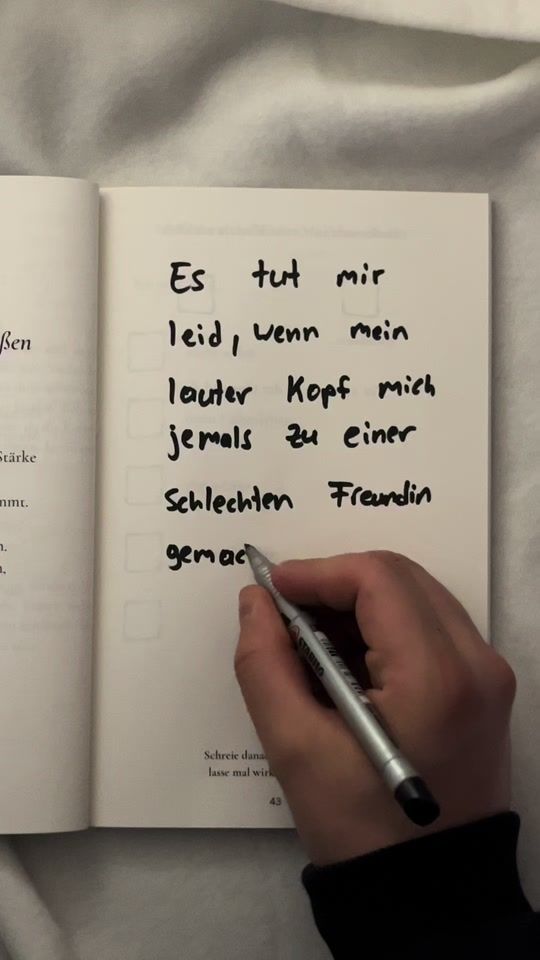 Es tut mir
leid, wenn mein
lauter Kopf mich
jemals zu einer
schlechten Freundin
gemac
ßen
Stärke
mmt.
n.
n,
Schreie dana
lasse mal wirk
43
STABILO